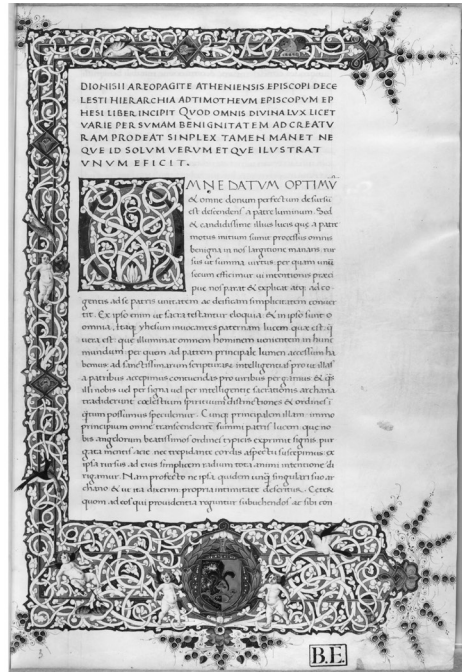 DIONISII AREOPAGITE ATHENIENSIS EPISCOPI DECE
LESTI HIERARCHIA AD TIMOTHEUM EPISCOPUM EP
HESI LIBER INCIPIT QUOD OMNIS DIVINA LUX LICET
VARIE PER SUMAM BENIGNITATEM AD CREATU
RAM PRODEAT SINPLEX TAMEN MANET NE
QUE ID SOLUM VERUM ET QUE ILUSTRAT
UNUM EFICIT.
OMNE DATUM OPTIMŪ
& omne donum perfectum desursū
est descendens a patre luminum. Sed
& candidissime illius lucis que a patre
motus initium sumit processus omnis
benigna in nos largitione manans, rur
sus ut summa virtus, per quam unū
secum efficimur vi intentionis
nos parat & explicat atq; ad co
gentis ad se patris unitatem ac deificam simplicitatem conver
tit. Ex ipso enim ut sacra testantur eloquia, & in ipso sunt o
omnia, Itaq; yhesum invocantes paternam lucem quae est, q̄
vera est: que illuminat omnem hominem venientem in hunc
mundum: per quem ad patrem principale lumen accessum ha
bemus: ad sanctissimarum scripturarum intelligentias
a patribus accepimus contuendas pro viribus pergamus: & q̄s
illi nobis vel per signa vel per intelligentie sacrationis archana
tradiderunt caelestium spirituum distinctiones & ordines i
possumus speculemur. Cunq; principalem illam: immo
principium omne transcendentē summi patris lucem, que no
bis angelorum beatissimos ordines typicis exprimit signis, pur
gata mentis acie nec trepidante cordis aspectu susceperimus: ex
ipsa rursus ad eius simplicem radium tota animi intentione di
rigamur. Nam profecto ne ipsa quidem unq̄ singulari suo ar
chano & ut ita dixerim propria intimitate deseritur. Ceterū
quom ad eos qui providentia reguntur subvehendos ac sibi con
B.E